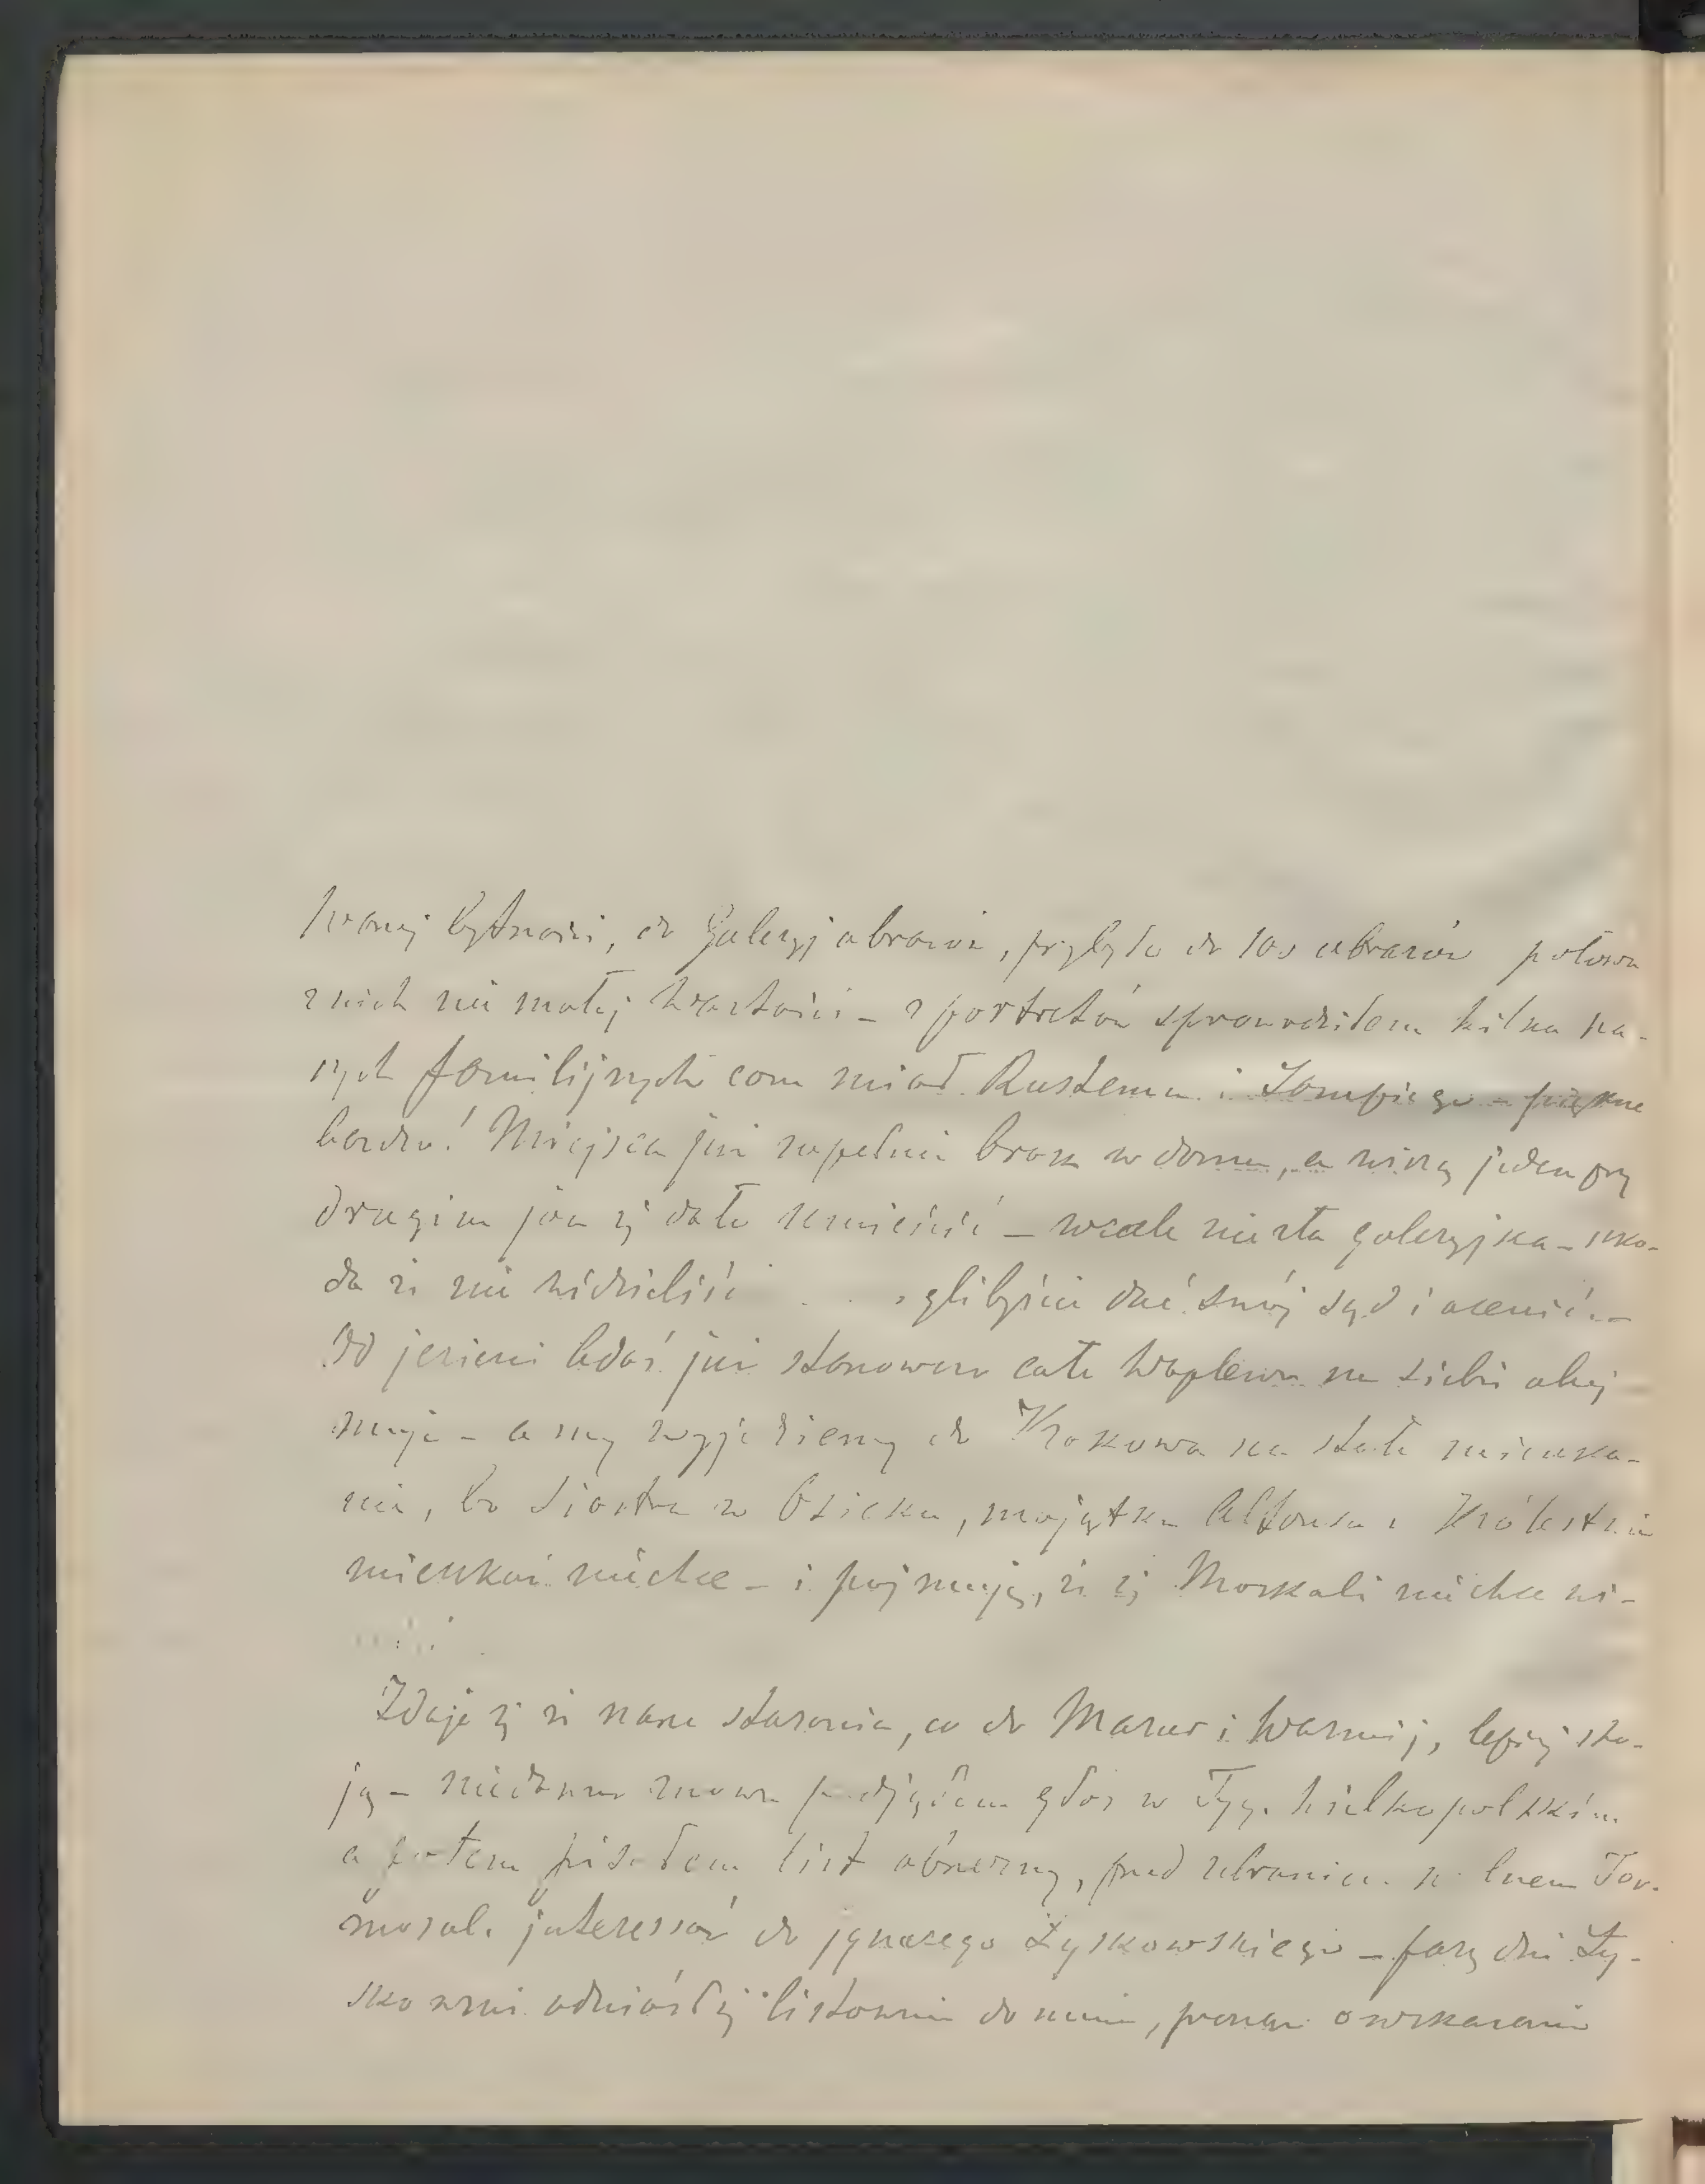 Twoiej bytności, do Galeryj obrazów, przybyło do 100 obrazów połowa
z nich nie małej wartości – z portretów sprowadziłem kilka na-
szych familijnych com miał Rustema i Lampiego – piękne
bardzo! Miejsca już zupełnie brak w domu, a wiszą jeden przy
drugim jak się dało umieścić – wcale niezła galeryjka – szko-
da że nie widzieliście glibyście dać swój sąd i ocenić. –
Od jesieni Adaś już stanowczo całe Waplewo na siebie obej
muje – a my wyjedziemy do Krakowa na stałe mieszka-
nie, bo Siostra w Osieku, majątku Alfonsa w Królestwie
mieszkać niechce – i pojmuję, że się Moskali niechce wi-
Zdaje się że nasze starania, co do Mazur i Warmij, lepiej sto-
ją – niedawno znowu podjąłem głos w Tyg. Wielkopolskim
a potem pisałem list obszerny, przed zebraniem Tow.
moral. interessów do Ignacego Łyskowskiego – parę dni Ły-
skowski odniósł się listownie do mnie, prosząc o wskazanie